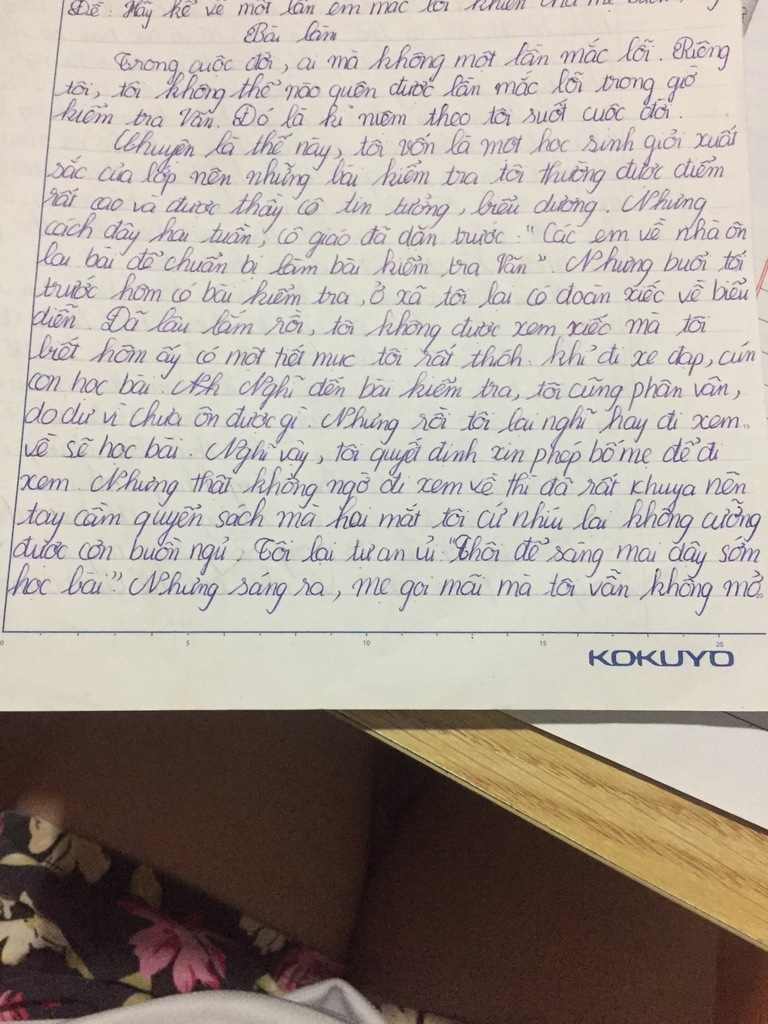 Đề: Hãy kể về một lần em mắc lỗi khiến cha mẹ buồn
Bài làm
Trong cuộc đời, ai mà không một lần mắc lỗi. Riêng
tôi, tôi không thể nào quên được lần mắc lỗi trong giờ
kiểm tra Văn. Đó là kỉ niệm theo tôi suốt cuộc đời.
Chuyện là thế này, tôi vốn là một học sinh giỏi xuất
sắc của lớp nên những bài kiểm tra tôi thường được điểm
rất cao và được thầy cô tin tưởng, biểu dương. Nhưng
cách đây hai tuần, cô giáo đã dặn trước: "Các em về nhà ôn
lại bài để chuẩn bị làm bài kiểm tra Văn". Nhưng buổi tối
trước hôm có bài kiểm tra, ở xã tôi lại có đoàn xiếc về biểu
diễn. Đã lâu lắm rồi, tôi không được xem xiếc mà tôi
biết hôm ấy có một tiết mục tôi rất thích khỉ đi xe đạp, cún
con học bài. Nh Nghĩ đến bài kiểm tra, tôi cũng phân vân,
do dự vì chưa ôn được gì. Nhưng rồi tôi lại nghĩ hay đi xem
về sẽ học bài. Nghĩ vậy, tôi quyết định xin phép bố mẹ để đi
xem. Nhưng thật không ngờ đi xem về thì đã rất khuya nên
tay cầm quyển sách mà hai mắt tôi cứ nhíu lại không cưỡng
được cơn buồn ngủ. Tôi lại tự an ủi "Thôi để sáng mai dậy sớm
học bài". Nhưng sáng ra, mẹ gọi mãi mà tôi vẫn không mở
0 5 10 15 20
KOKUYO